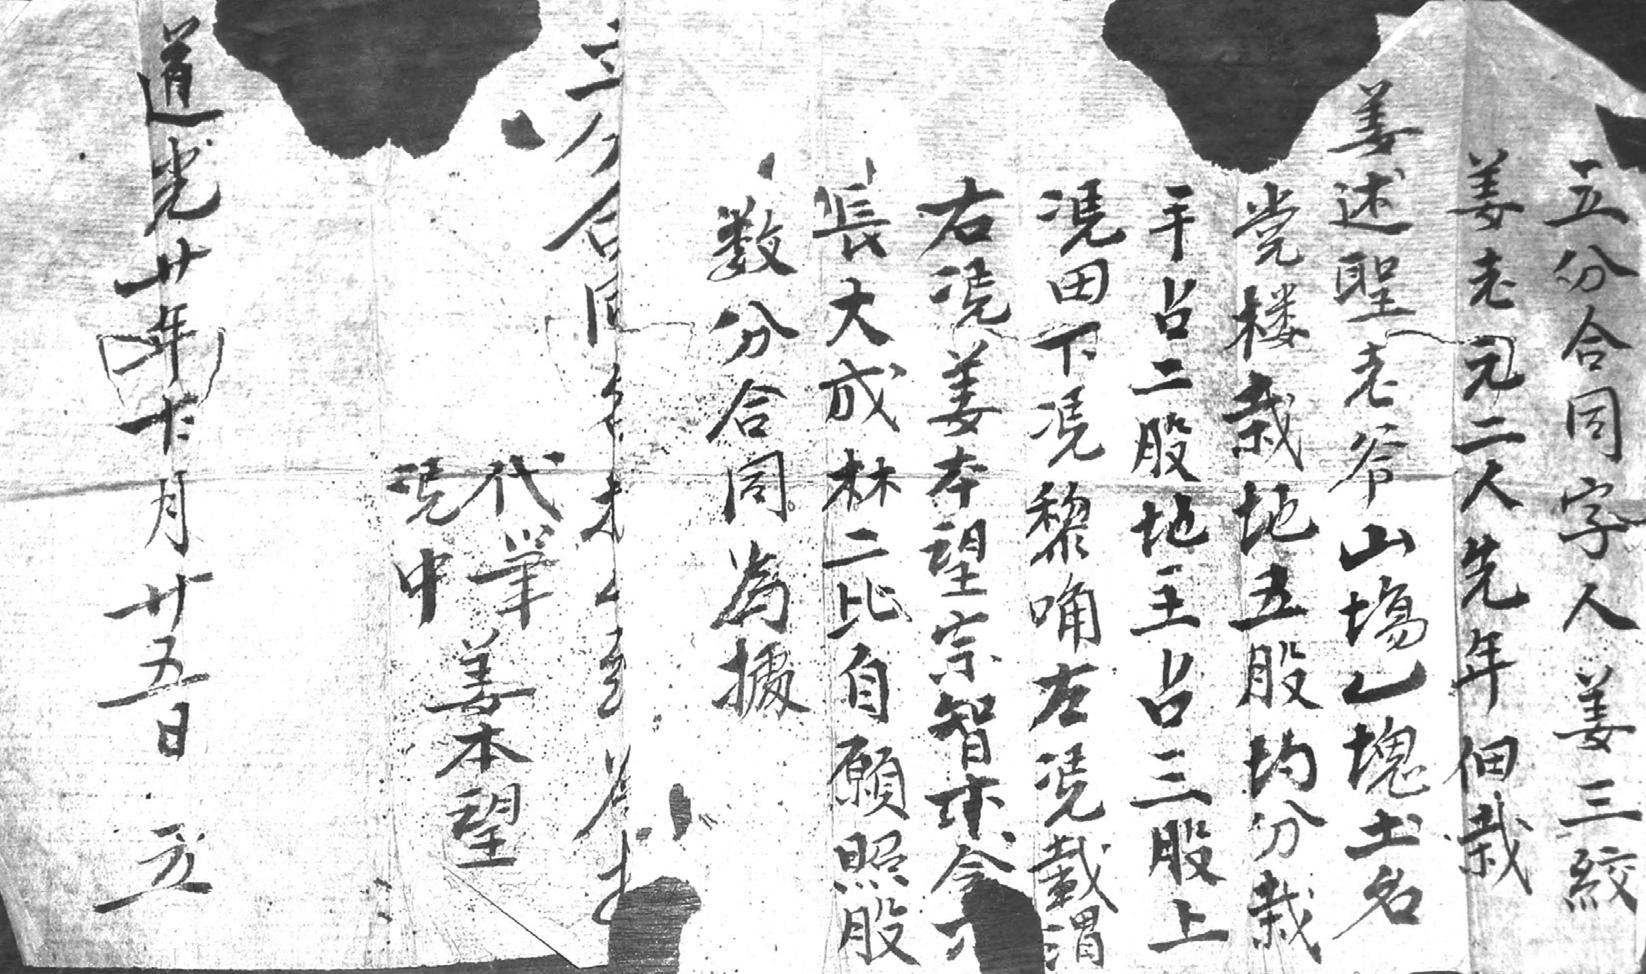 立分合同字人姜三絞
姜老元二人先年佃栽
姜述聖老爷山塲乙塊土名
党楼栽地五股均分栽
手占二股地主占三股上
凴田下凴黎唃左凴載渭
右凴姜本望宗智木今
長大成林二比自願照股
数分合同為據
立分合同
代筆 姜本望
凴中
道光廿年十月廿五日 立